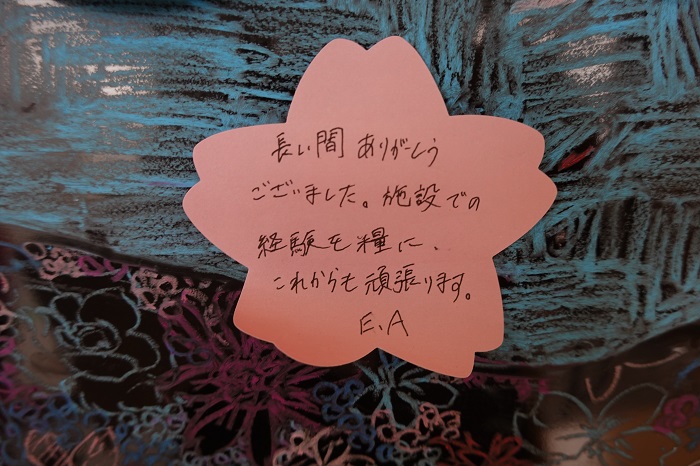 長い間 ありがとう
ございました。施設での
経験を糧に、
これからも頑張ります。
E.A